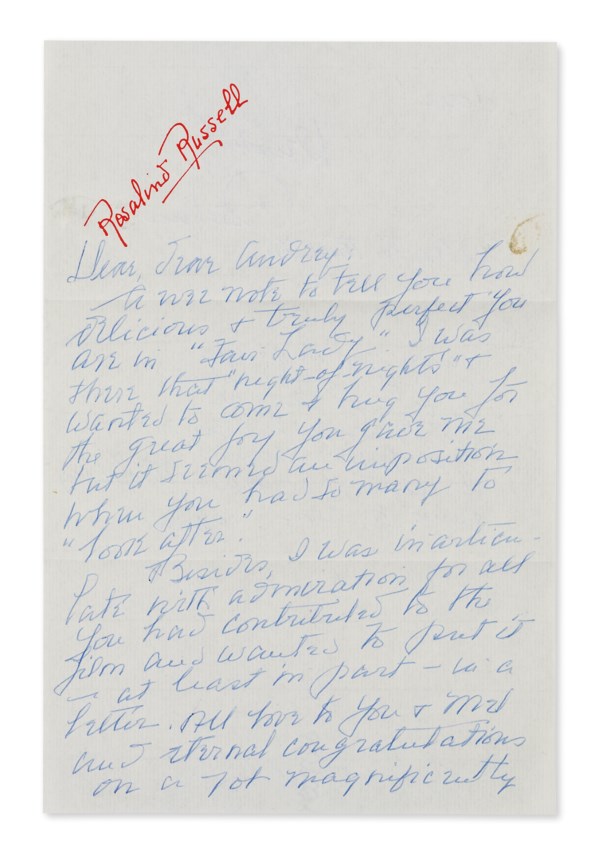 Rosalind Russell
Dear, dear Audrey:
A wee note to tell you how
delicious & truly perfect you
are in "Fair Lady." I was
there that "night-of-nights" &
wanted to come & hug you for
the great joy you gave me
but it seemed an imposition
when you had so many to
"look after."
Besides, I was inarticu-
late with admiration for all
you had contributed to the
film and wanted to put it
– at least in part – in a
letter. All love to you & Mel
and eternal congratulations
on a job magnificently